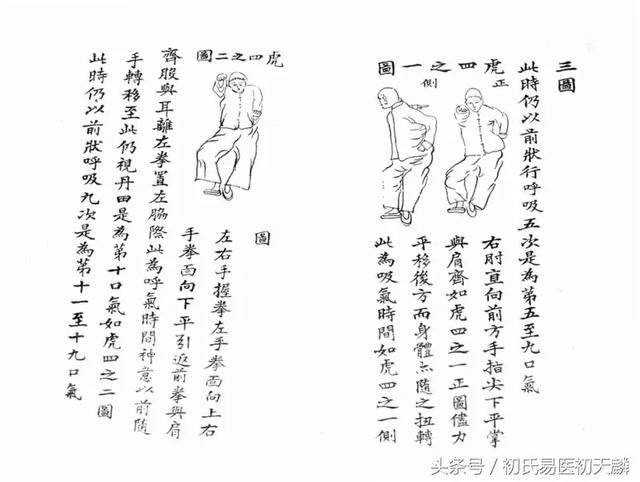 三圖
此時仍以前狀行呼吸五次是為第五至九口氣
虎四之一圖
正
側
右肘直向前方手指尖下平掌
與肩齊如虎四之一正圖儘力
平移後方而身體亦隨之扭轉
此為吸氣時間如虎四之一側
圖
左右手握拳左手拳面向上右
手拳面向下平引返前拳與肩
虎四之二圖
齊股與耳離左拳置左脇際此為呼氣時間神意以前隨
手轉移至此仍視丹田是為第十口氣如虎四之二圖
此時仍以前狀呼吸九次是為第十一至十九口氣
头条号/初氏易医初天麟